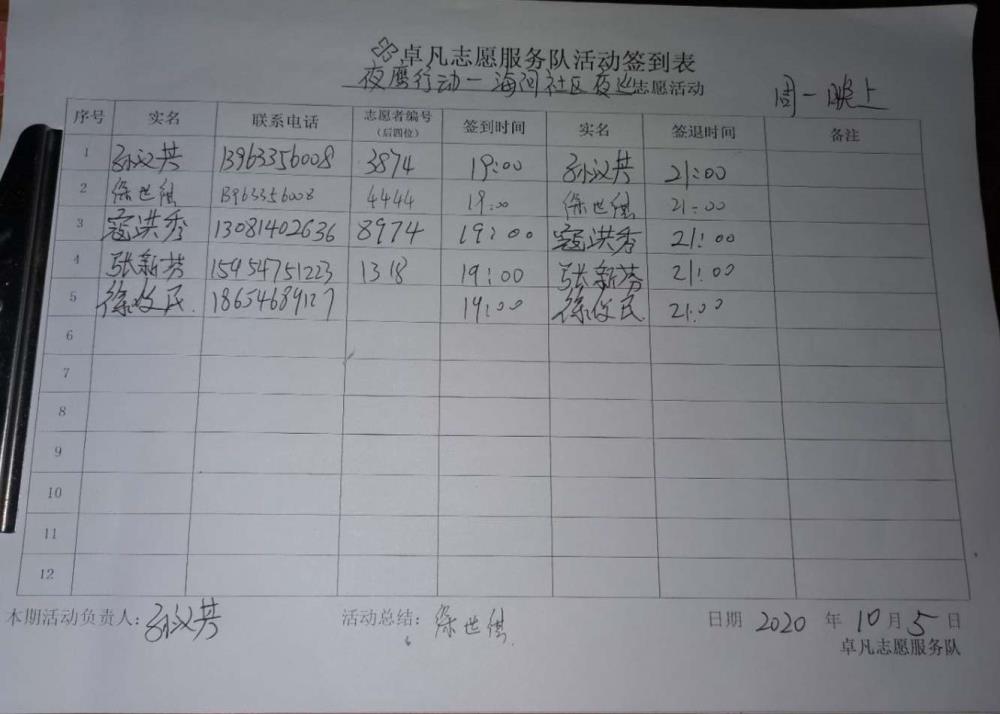 卓凡志愿服务队活动签到表
夜鹰行动一海河社区夜巡志愿活动 周一晚上
序号 实名 联系电话 志愿者编号（后四位） 签到时间 实名 签退时间 备注
1 孙汉芹 13963356008 3874 19:00 孙汉芹 21:00
2 徐世供 13963356008 4444 19:00 徐世供 21:00
3 寇洪秀 13081402636 8974 19:00 寇洪秀 21:00
4 张新芬 15954751223 1318 19:00 张新芬 21:00
5 徐收民 18654689127 19:00 徐收民 21:00
6
7
8
9
10
11
12
本期活动负责人：孙汉芹 活动总结：徐世供 日期 2020 年 10 月 5 日
卓凡志愿服务队